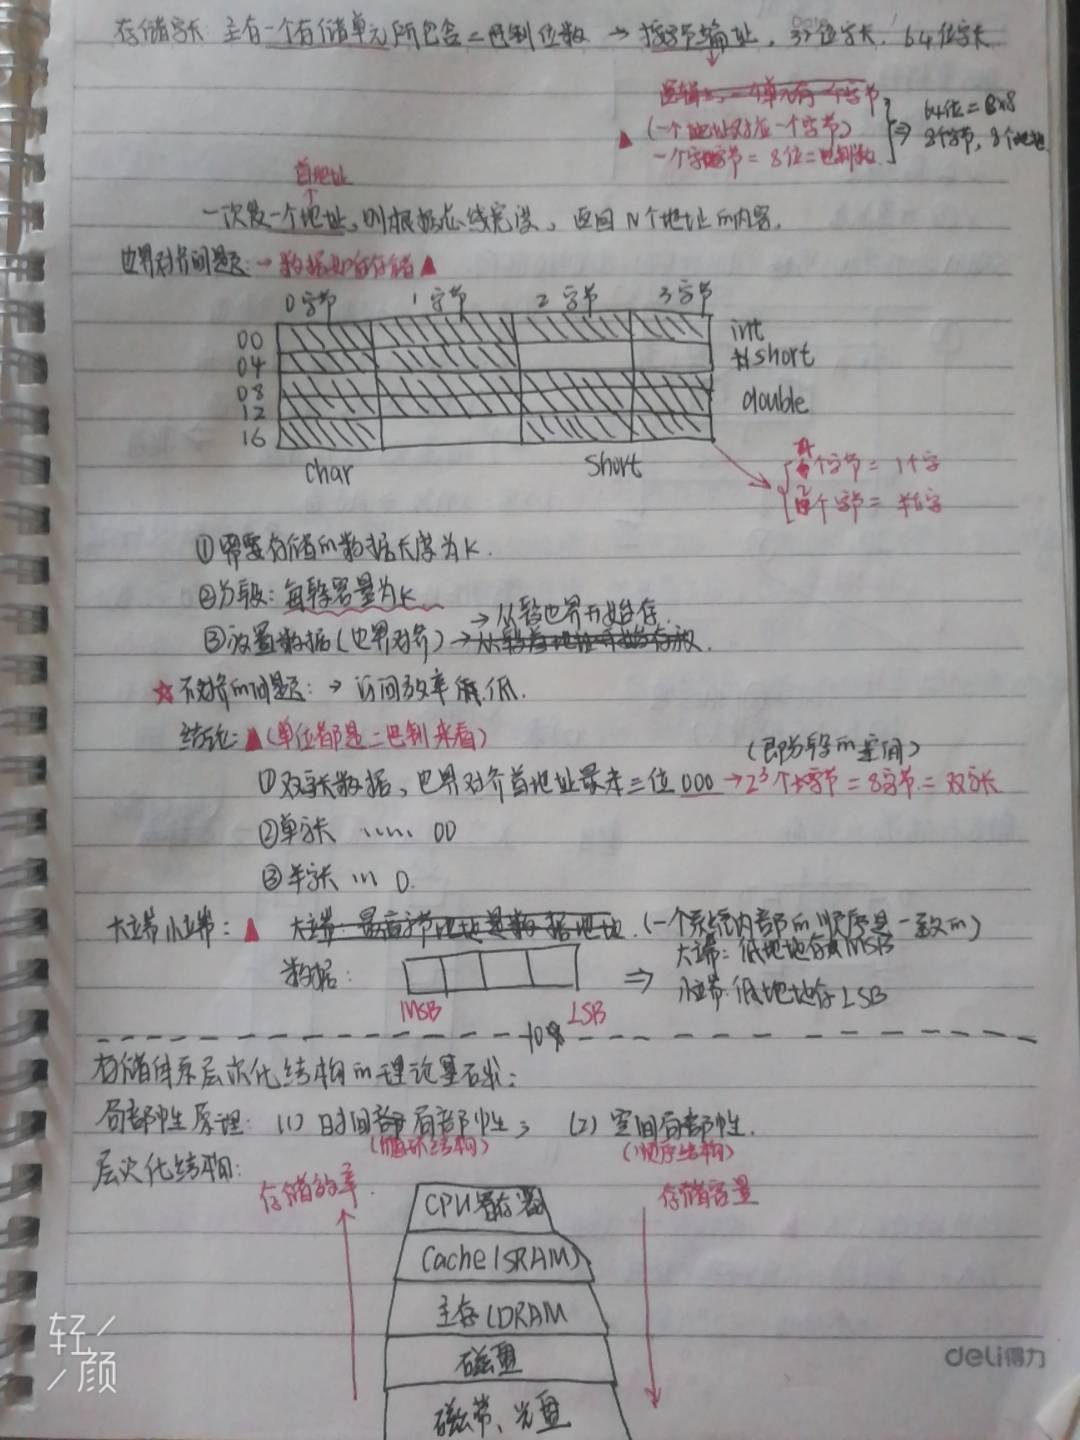 存储字长: 主存一个存储单元所包含二进制位数 → 按字节编址, 32位字长, 64位字长
逻辑上, 一个单元存一个字节
(一个地址对应一个字节)
一个字节 = 8位二进制数
⇒ 64位 = 8×8
8个字节, 8个地址
首地址
一次发一个地址, 则根据总线宽度, 返回N个地址的内容.
边界对齐问题: → 数据如何存储
0字节 1字节 2字节 3字节
00 int
04 short
08 double
12
16
char short
4个字节 = 1个字
2个字节 = 半个字
①需要存储的数据长度为K.
②分段: 每段容量为K
→从段边界开始存.
③放置数据(边界对齐) → 从段首地址开始存放.
☆不对齐的问题: → 访问效率低.
结论: (单位都是二进制来看)
(即分段的空间)
①双字长数据, 边界对齐首地址最末三位000 → 2³个字节 = 8字节 = 双字长
②单字长 ..... 00
③半字长 ... 0.
大端小端: 大端: 最高字节地址是数据地址. (一个系统内部的顺序是一致的)
数据: ⇒ 大端: 低地址存MSB
小端: 低地址存LSB
MSB LSB
存储体系层次化结构的理论基础:
局部性原理: (1) 时间局部性; (2) 空间局部性.
(循环结构) (顺序结构)
层次化结构:
存储效率 存储容量
CPU寄存器
Cache(SRAM)
主存(DRAM
磁盘
磁带、光盘
轻颜
deli得力